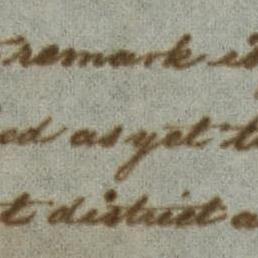 remark i
ed as yet t
t district a